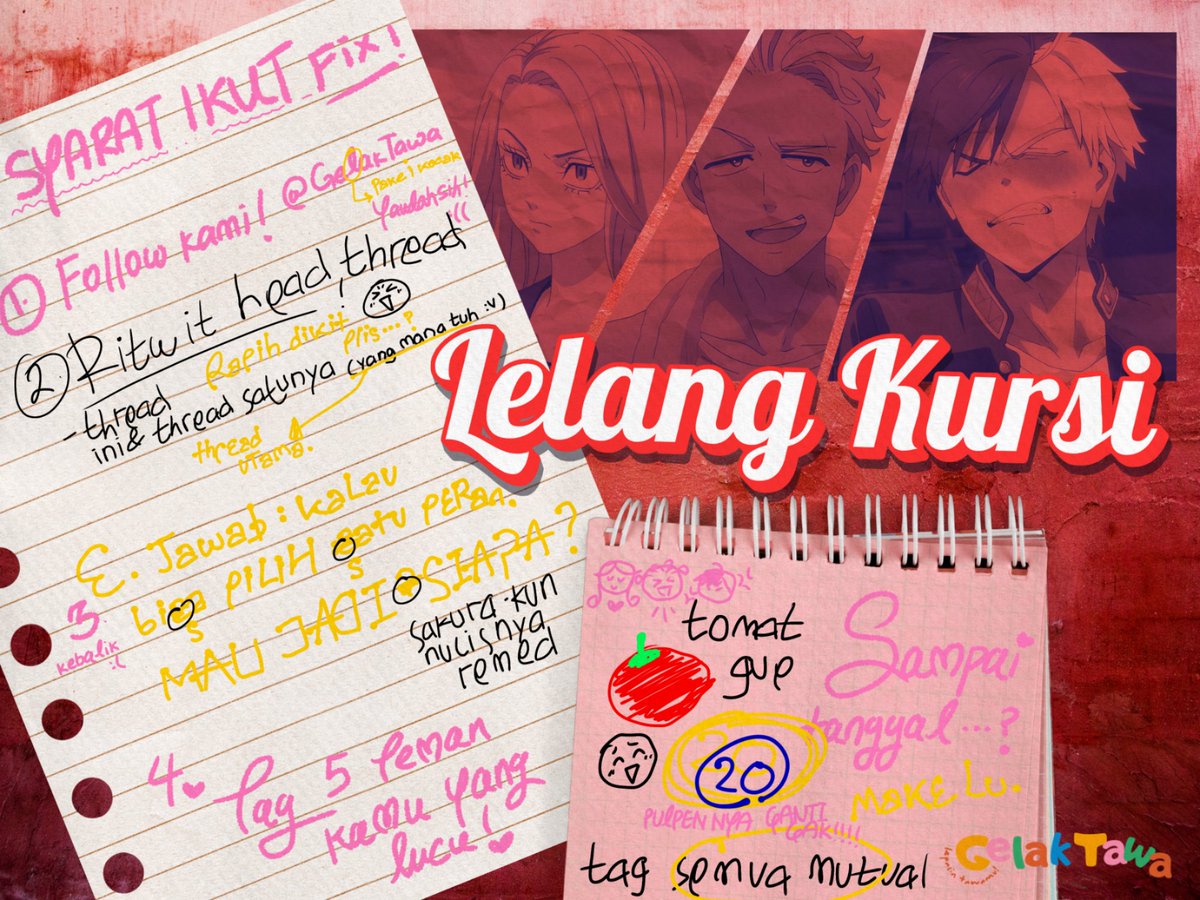 SYARAT IKUT FIX!
1. Follow kami! @GelakTawa
Pake i kocak
Yaudah sih!
:((
2 Ritwit head, thread
Rapih dikit
plis...?
- thread
ini & thread satunya (yang mana tuh :v)
thread
utama.
Ɛ. Jawab : kalau
bisa PILIH satu PERAN.
s s
MAU JADI SIAPA?
3
kebalik
:(
sakura-kun
nulisnya
remed
4. Tag 5 Teman
kamu yang
lucu!
Lelang Kursi
tomat
gup
Sampai
tanggal...?
20
MAKE LU.
PULPEN NYA GANTI
GAK!!!!
tag semua mutual
Gelak Tawa